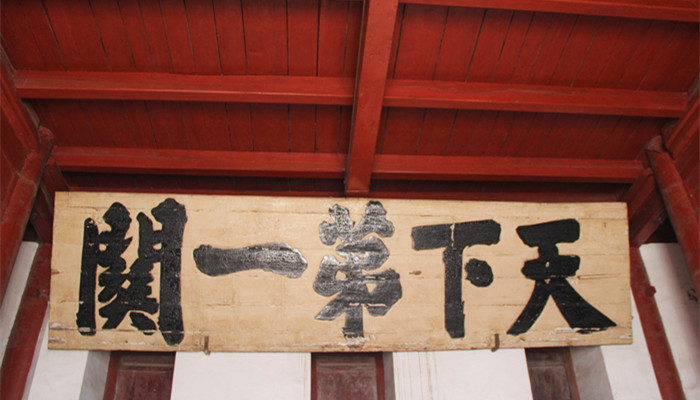 天下第一関